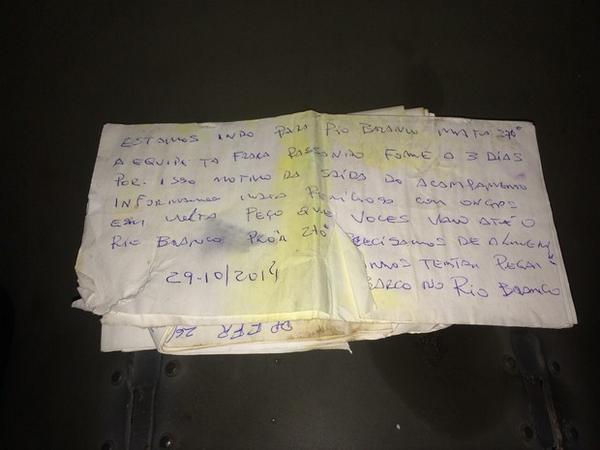 ESTAMOS INDO PARA RIO BRANCO MATA 270°
A EQUIPE TA FRACA PASSANDO FOME A 3 DIAS
POR. ISSO MOTIVO DA SAÍDA DO ACAMPAMENTO
INFORMAMOS PERIGOSO COM ONÇAS
EM VOLTA PEÇO QUE VOCES VAM ATÉ O
RIO BRANCO PROA 270° PRECISAMOS DE
VAMOS TENTAR PEGAR
29-10/2014
BARCO NO RIO BRANCO